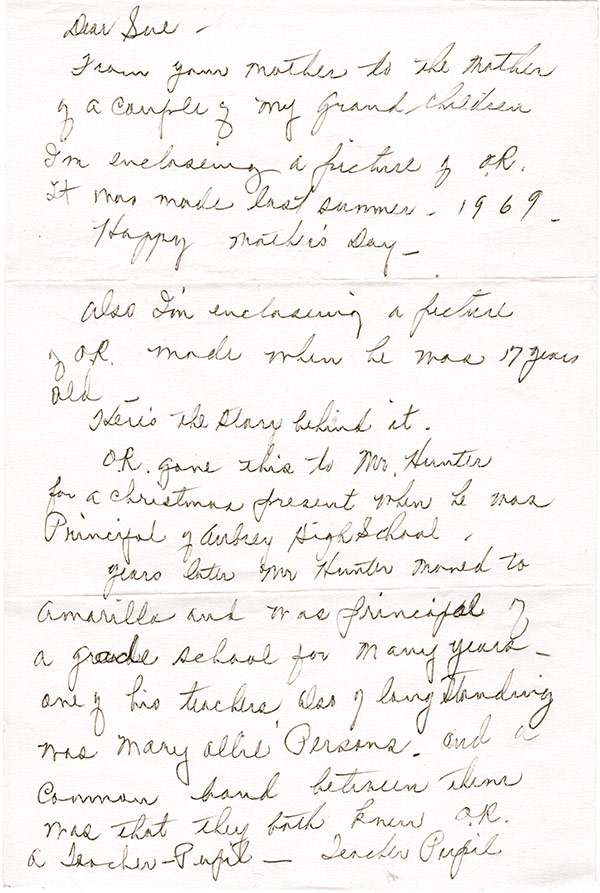 Dear Sue -
From your mother to the mother
of a couple of my Grand-children
I'm enclosing a picture of O.R.
It was made last summer - 1969 -
Happy Mother's Day -
Also I'm enclosing a picture
of O.R. made when he was 17 years
old -
Here's the story behind it.
O.R. gave this to Mr. Hunter
for a Christmas present when he was
Principal of Aubrey High School.
Years later Mr Hunter moved to
Amarillo and was principal of
a grade school for many years -
one of his teachers also of long standing
was Mary Allie Persons - and a
common bond between them
was that they both knew O.R.
a Teacher-Pupil - Teacher Pupil